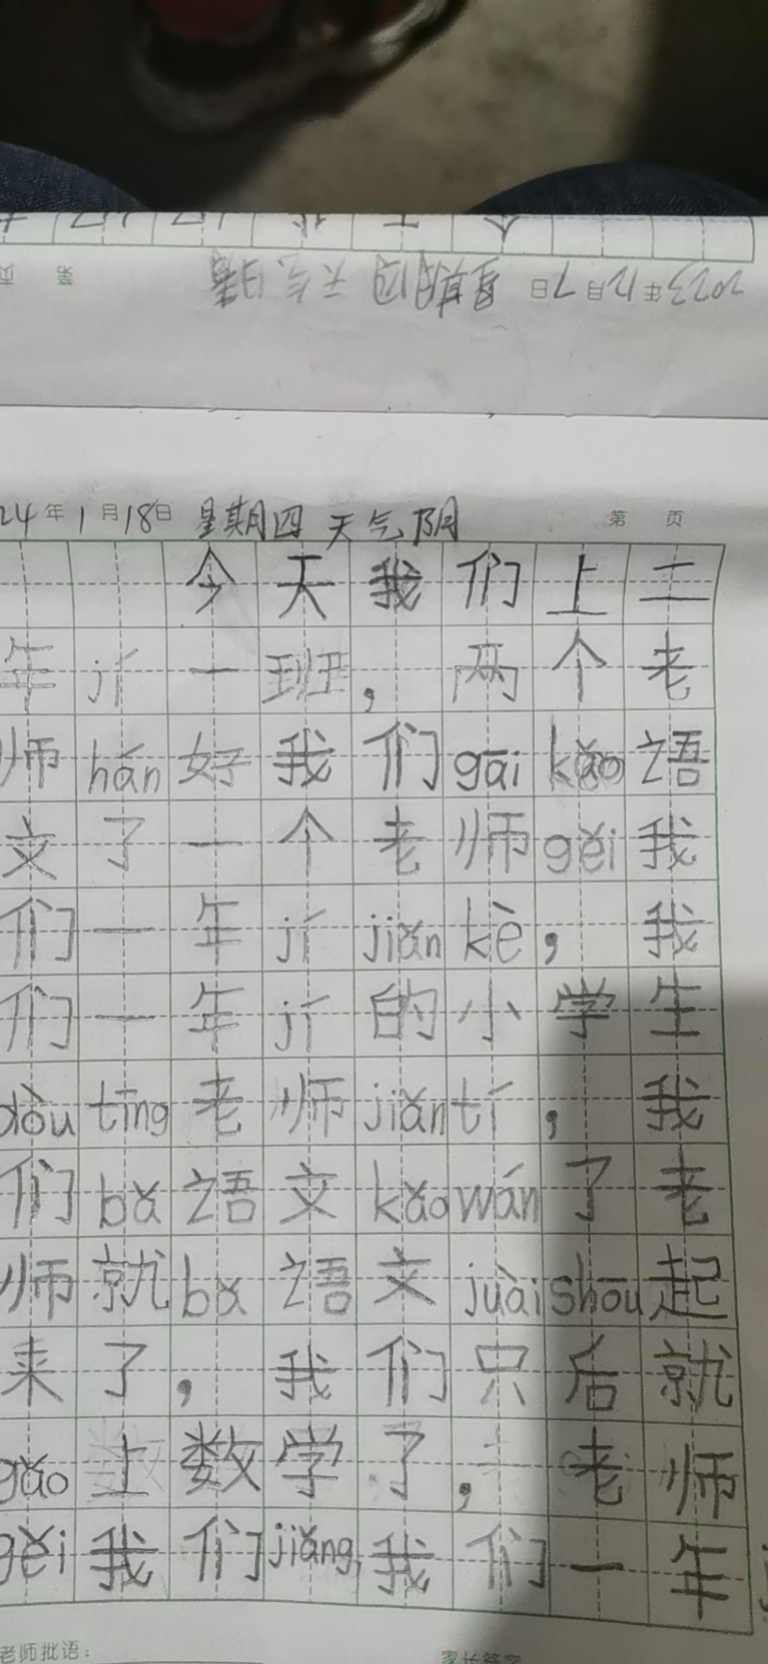 2023年12月7日 星期四 天气日春
第 页
24年1月18日 星期四 天气阴 第 页
今天我们上二
年jí一班，两个老
师hán好我们gāi kǎo语
文了一个老师gěi我
们一年jí jiǎn kè，我
们一年jí的小学生
dōu tīng老师jiǎn tí，我
们bǎ语文kǎo wán了老
师就bǎ语文juài shōu起
来了，我们只后就
gǎo上数学了，老师
gěi我们jiǎng我们一年
老师批语：
家长签字